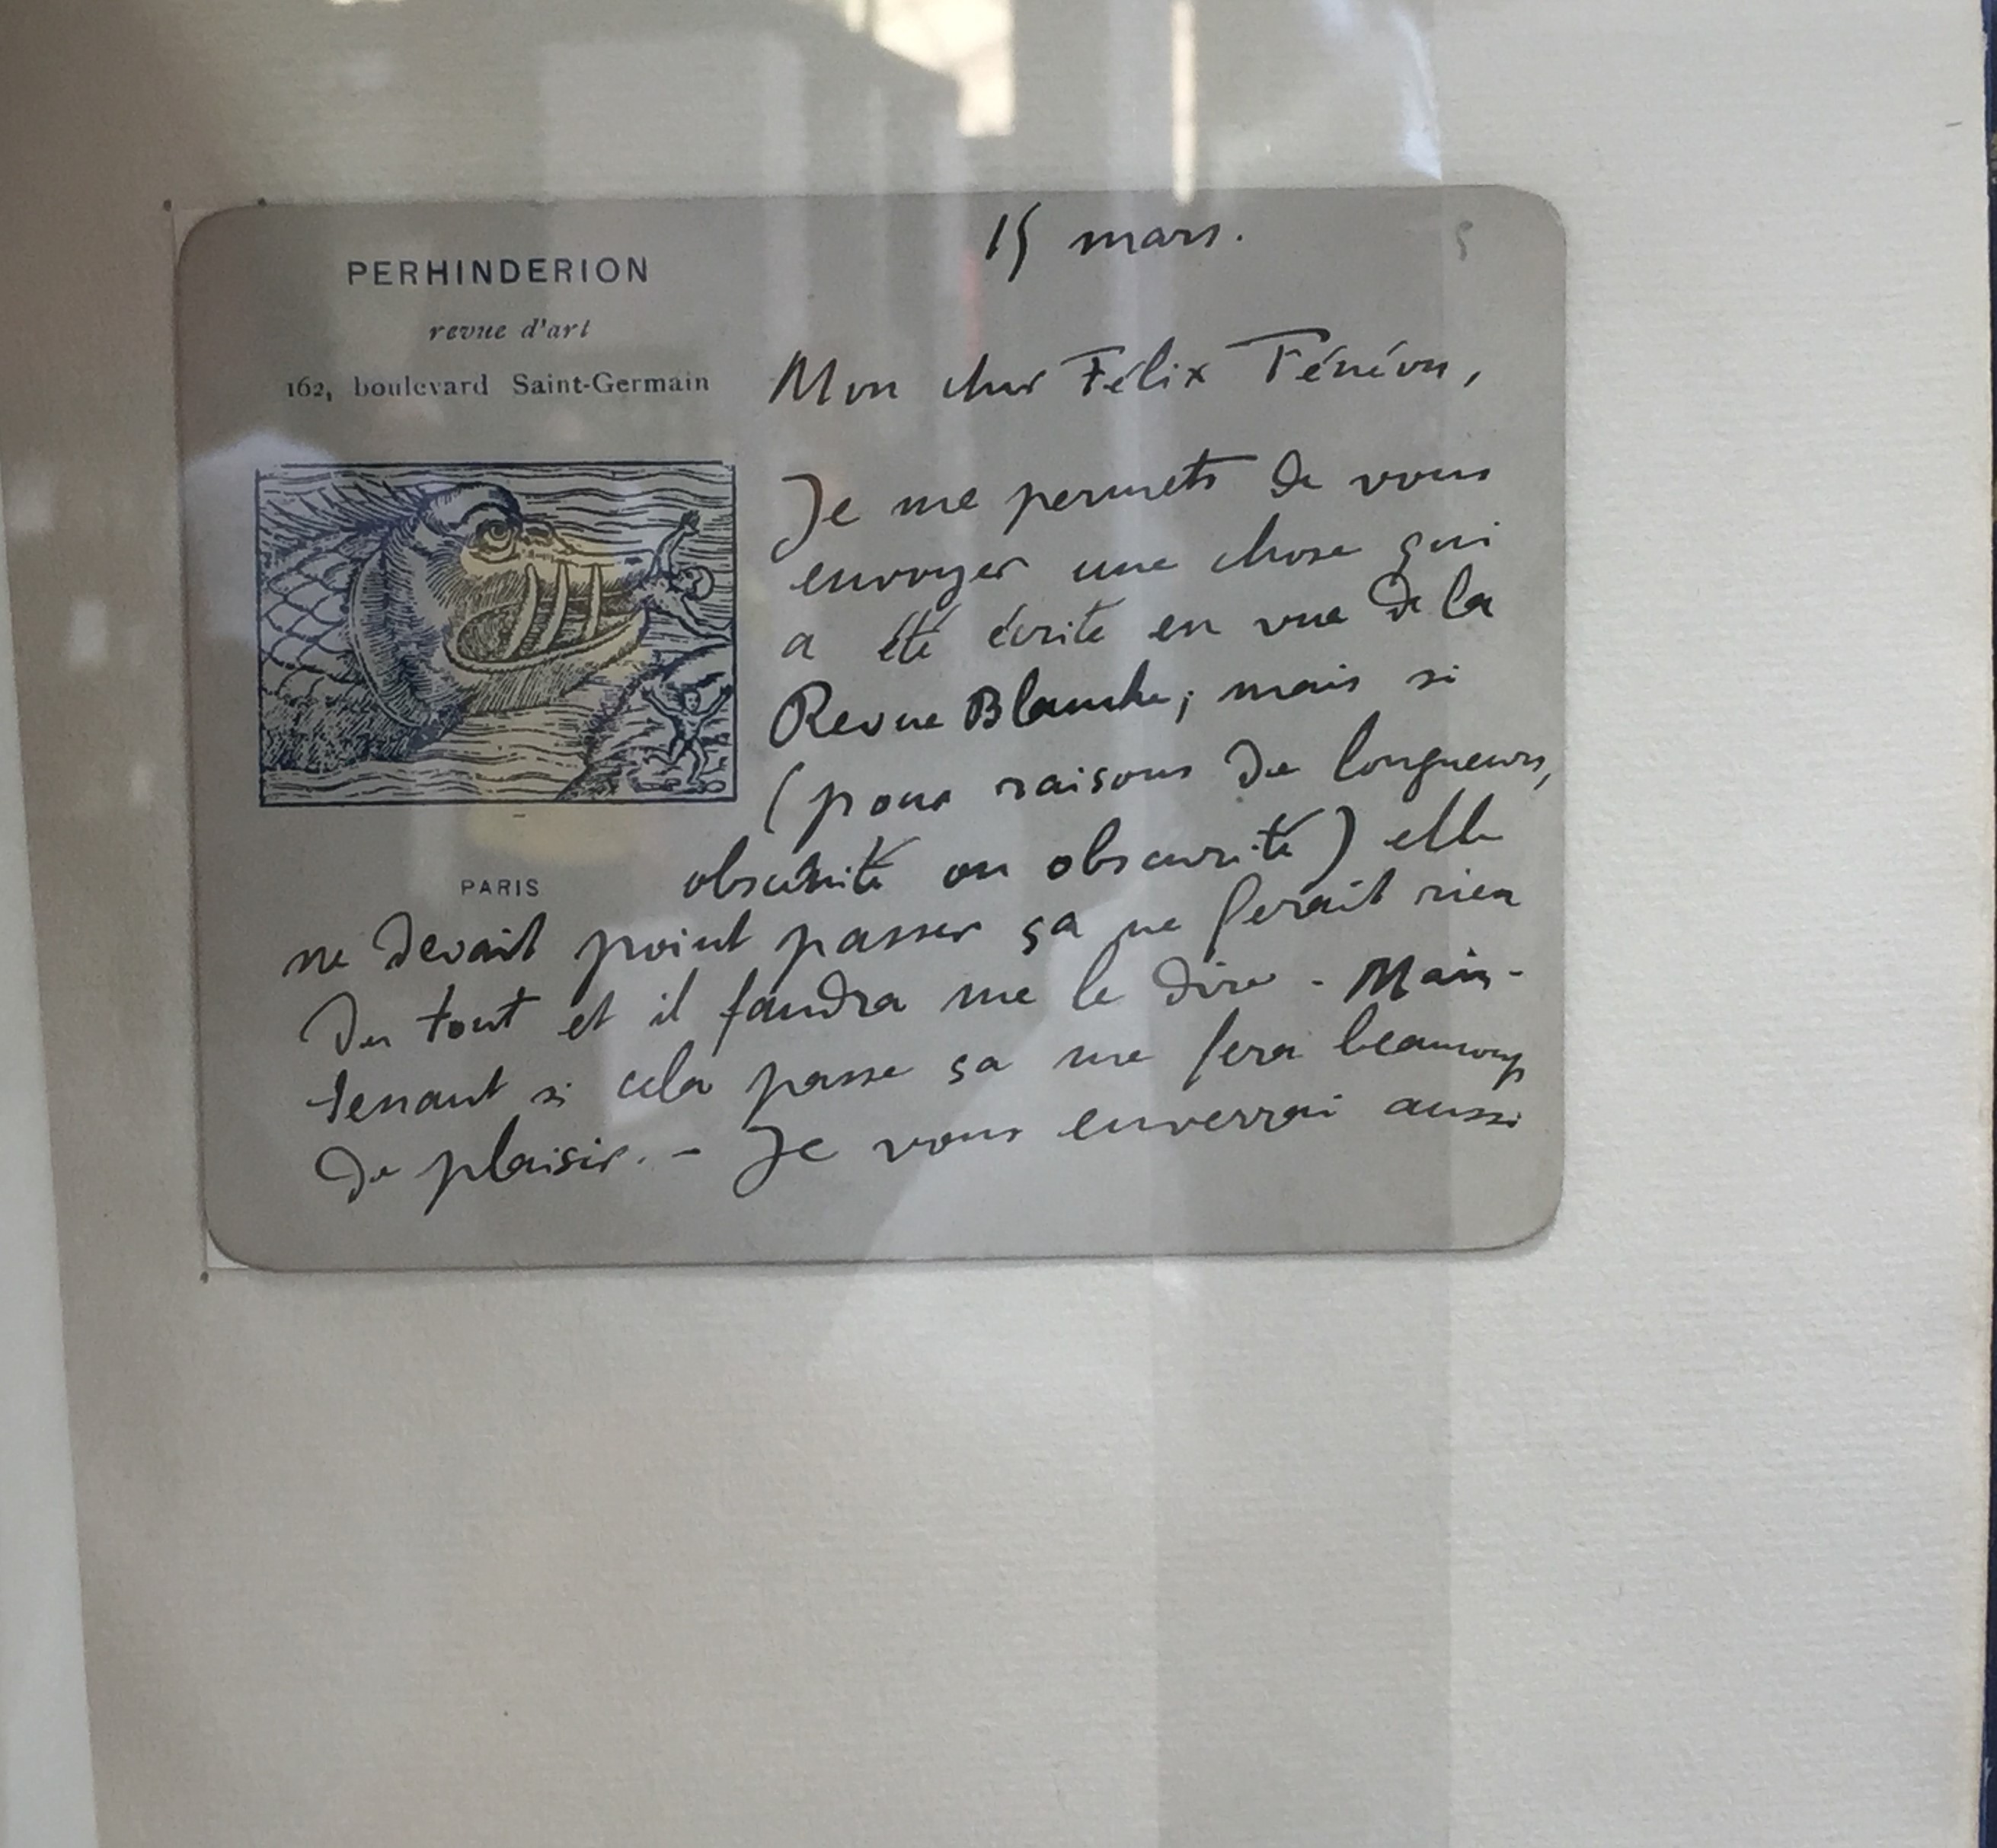 PERHINDERION
revue d'art
162, boulevard Saint-Germain
PARIS
15 mars.
5
Mon cher Félix Fénéon,
Je me permets de vous
envoyer une chose qui
a été écrite en vue de la
Revue Blanche; mais si
(pour raisons de longueurs,
obscénité ou obscurité) elle
ne devait point passer ça ne ferait rien
du tout et il faudra me le dire - Main-
tenant si cela passe ça me fera beaucoup
de plaisir. - Je vous enverrai aussi